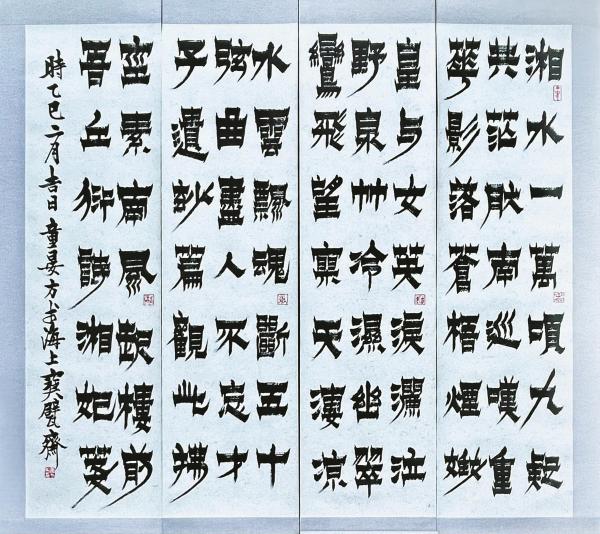 湘水一萬頃九疑
共茫肰南巡嘆重
華影落蒼梧煙
皇与女英淚瀾泣
野泉竹冷濕幽翠
鸞飛望天凄凉
水雲飄魂斷五十
弦曲盡人不忘才
子遺妙篇觀此拂
塵素南風起樓前
吾丘衍詩湘妃
時乙巳二月吉日童晏方于海上寶甓齋